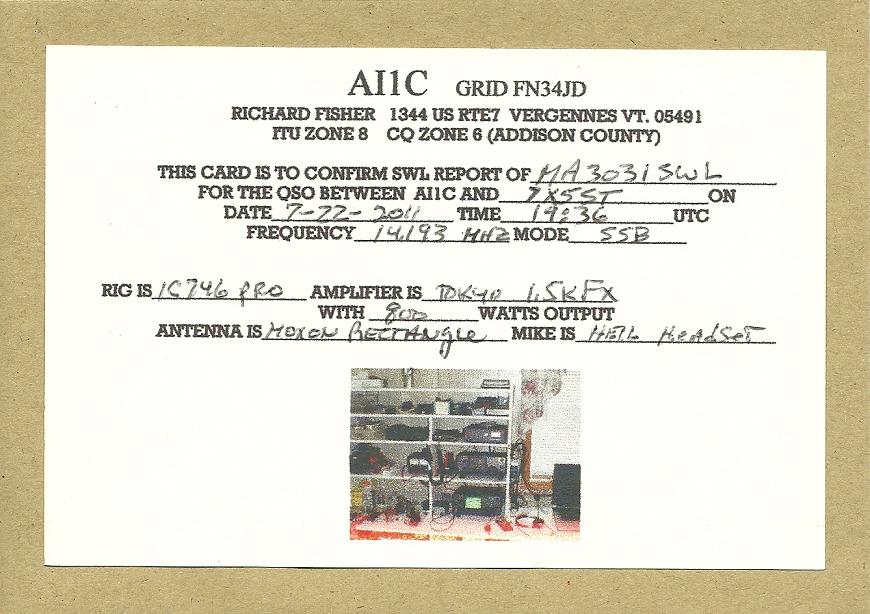 AI1C GRID FN34JD
RICHARD FISHER 1344 US RTE7 VERGENNES VT. 05491
ITU ZONE 8 CQ ZONE 6 (ADDISON COUNTY)
THIS CARD IS TO CONFIRM SWL REPORT OF MA3031SWL
FOR THE QSO BETWEEN AI1C AND 7X5ST ON
DATE 7-22-2011 TIME 19:36 UTC
FREQUENCY 14,193 MHz MODE SSB
RIG IS IC746 PRO AMPLIFIER IS TOKYO 1.5KFX
WITH 800 WATTS OUTPUT
ANTENNA IS MOXON RECTANGLE MIKE IS HEIL HeadSeT